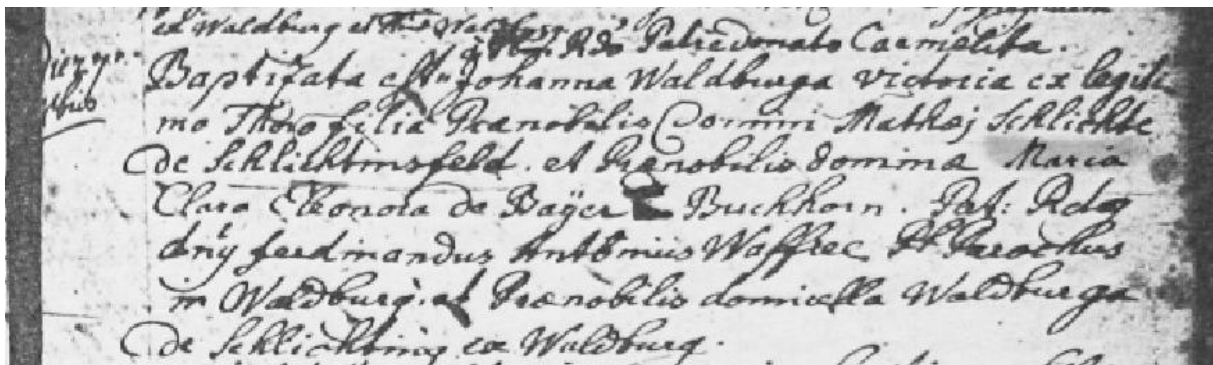 ex Waldburg et
Rdo Patre donato Carmelita.
Baptizata est Johanna Waldburga Victoria ex legiti
mo Thoro filia Prænobilis Domini Mathaj Schlichte
de Schlichtinsfeld. et Prænobilis domina Maria
Clara Eleonora de Baÿer Buchhorn. Pat: Rdg
dny ferdinandus Antonius Waffrec Parochus
in Waldburg. et Prænobilis domicella Waldburga
de Schlichting ex Waldburg.